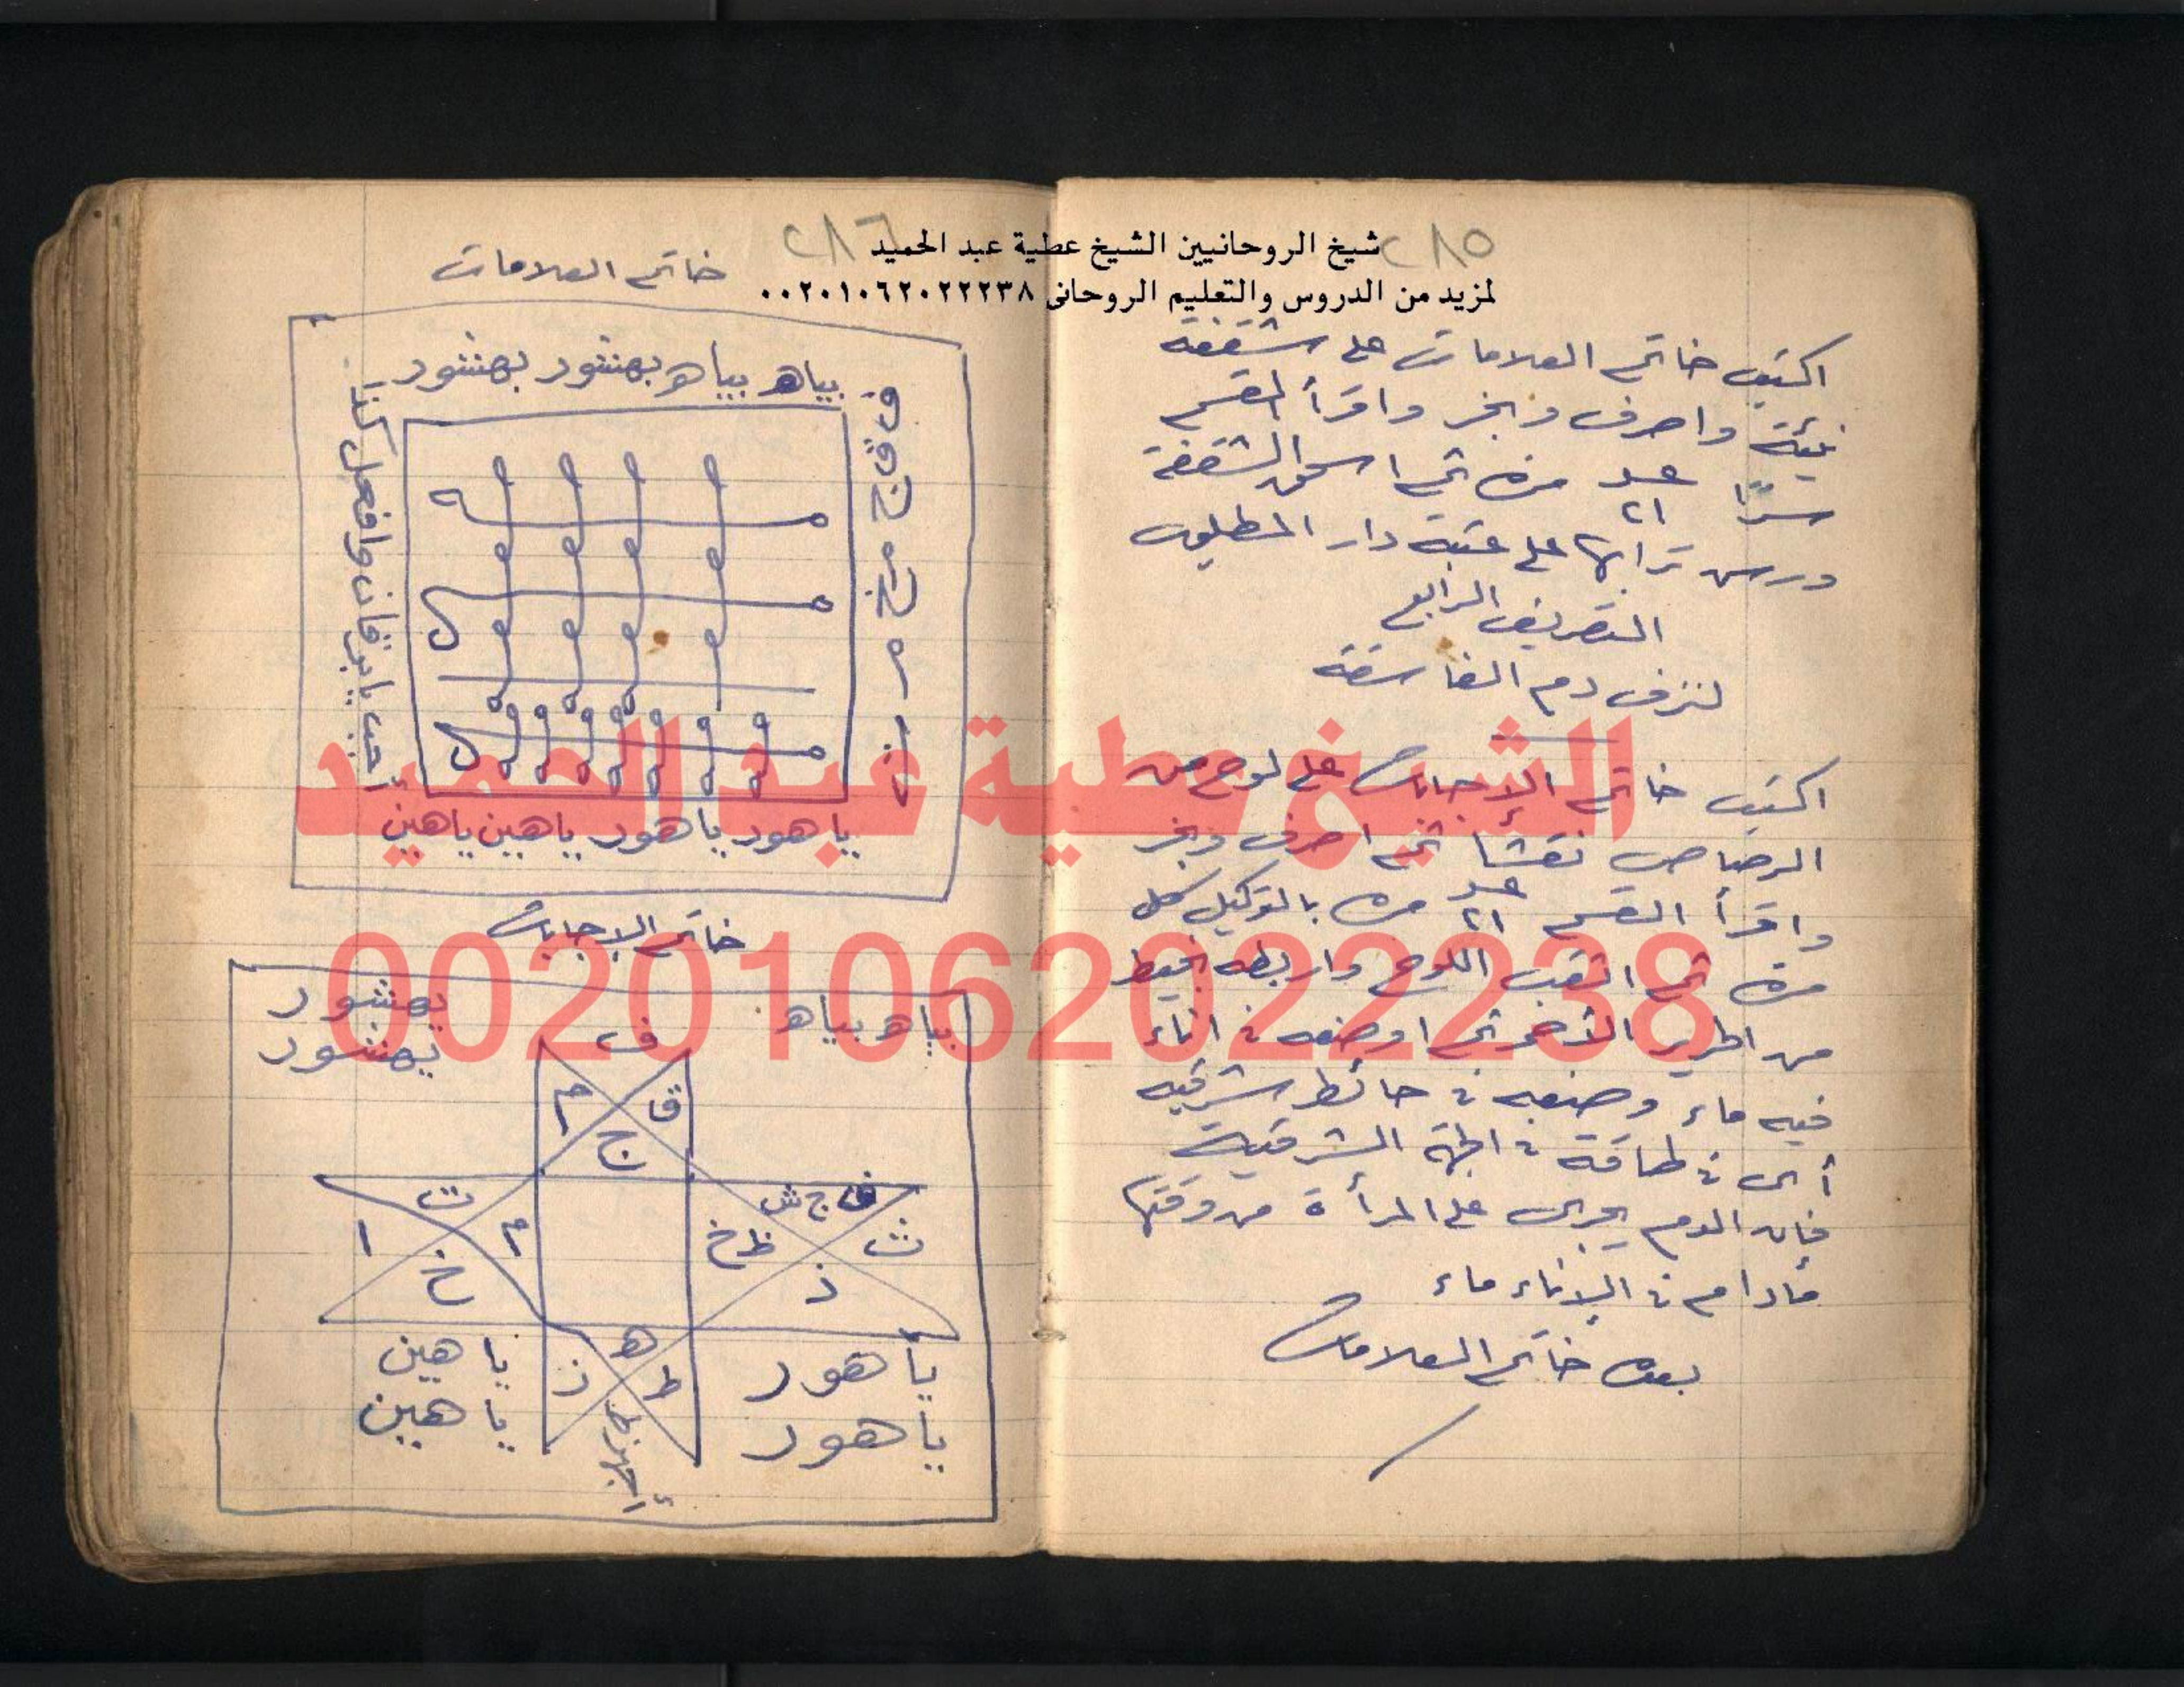 شيخ الروحانيين الشيخ عطية عبد الحميد
لمزيد من الدروس والتعليم الروحانى ٠٠٢٠١٠٦٢٠٢٢٢٣٨
٢٨٥
اكتب خاتم العلامات على شقفة
نيئة واصرف وبخر واقرأ القسم
سرًا عدد ٢١ مرة ثم اسحق الشقفة
ورس ترابها على عتبة دار المطلوب
التصريف الرابع
لنزف دم الفاسقة
اكتب خاتم الإجابات على لوح من
الرصاص نقشا ثم اصرف وبخر
واقرأ القسم عدد ٢١ مرة بالتوكيل كل
مرة ثم اثقب اللوح واربطه بخيط
من الحرير الأحمر ثم اوضعه فى اناء
فيه ماء وضعه فى حائط شرقيه
أى فى طاقة فى الجهة الشرقية
فإن الدم يجرى على المرأة من وقتها
مادام فى الإناء ماء
بعده خاتم العلامات
٢٨٦
خاتم العلامات
بياه بياه بهنشور بهنشور
ف ق ج م خ
أجب يا برقان وافعل كذا
ياهور ياهور ياهين ياهين
خاتم الإجابات
بياه بياه
بهنشور
بهنشور
ف
م ق
ج
ت
ا م
خ
ق ج ش
ظ خ ث
ذ
ه
ز ط
ياهور
ياهور
ياهين
ياهين
الشيخ عطية عبد الحميد
00201062022238